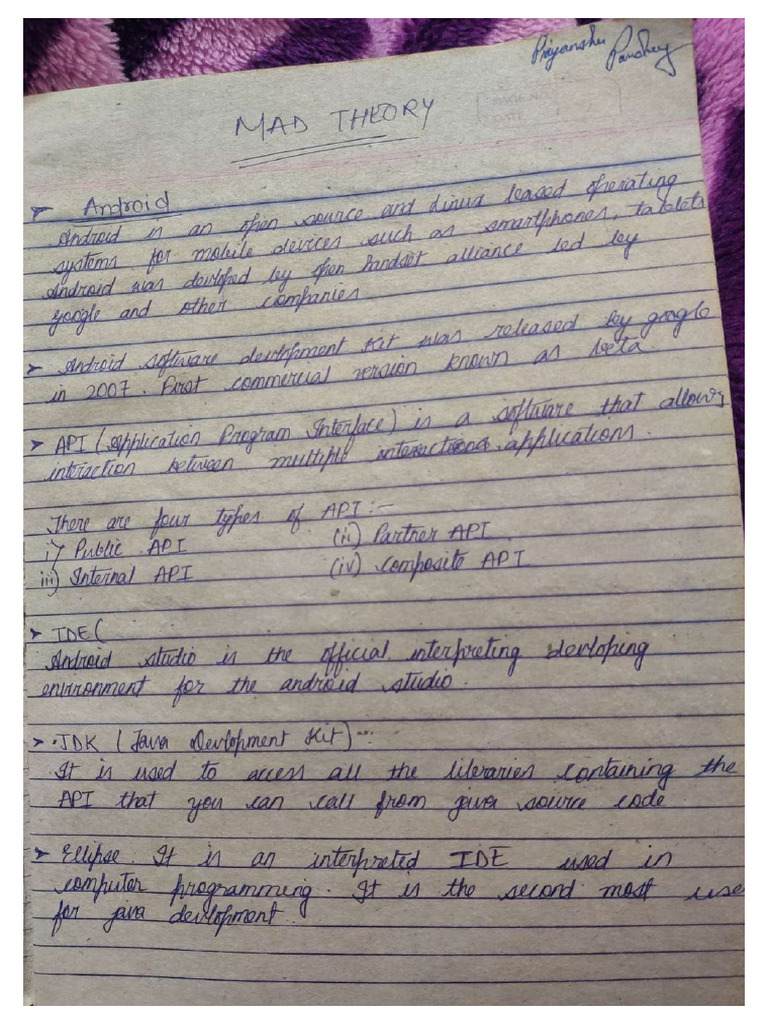 Priyanshu Pandey
MAD THEORY
➤ Android
Android is an open source and Linux based operating
systems for mobile devices such as smartphones, tablets
Android was devloped by open handset alliance led by
google and other companies.
➤ Android software development kit was released by google
in 2007. First commercial version known as beta.
➤ API (Application Program Interface) is a software that allows
interaction between multiple interactions applications.
There are four types of API :-
i) Public API (ii) Partner API
iii) Internal API (iv) Composite API
➤ IDE (
Android studio is the official interpreting devloping
environment for the android studio.
➤ JDK (Java Devlopment Kit) :
It is used to access all the libraries containing the
API that you can call from java source code
➤ Ellipse. It is an interpreted IDE used in
computer programming. It is the second most use
for java devlopment.